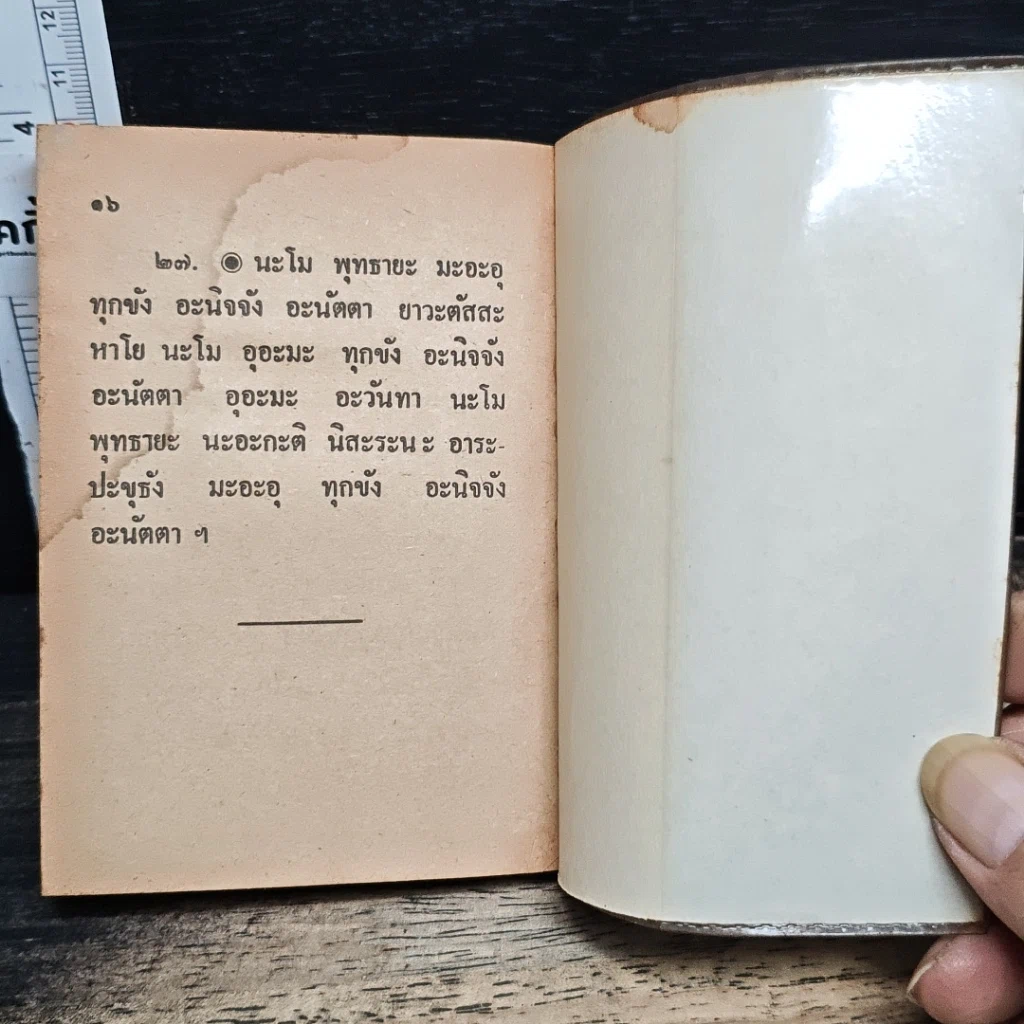 12
11
4
คถี
๑๖
๒๗. ◉ นะโม พุทธายะ มะอะอุ
ทุกขัง อะนิจจัง อะนัตตา ยาวะตัสสะ
หาโย นะโม อุอะมะ ทุกขัง อะนิจจัง
อะนัตตา อุอะมะ อะวันทา นะโม
พุทธายะ นะอะกะติ นิสะระนะ อาระ-
ปะขุธัง มะอะอุ ทุกขัง อะนิจจัง
อะนัตตา ฯ